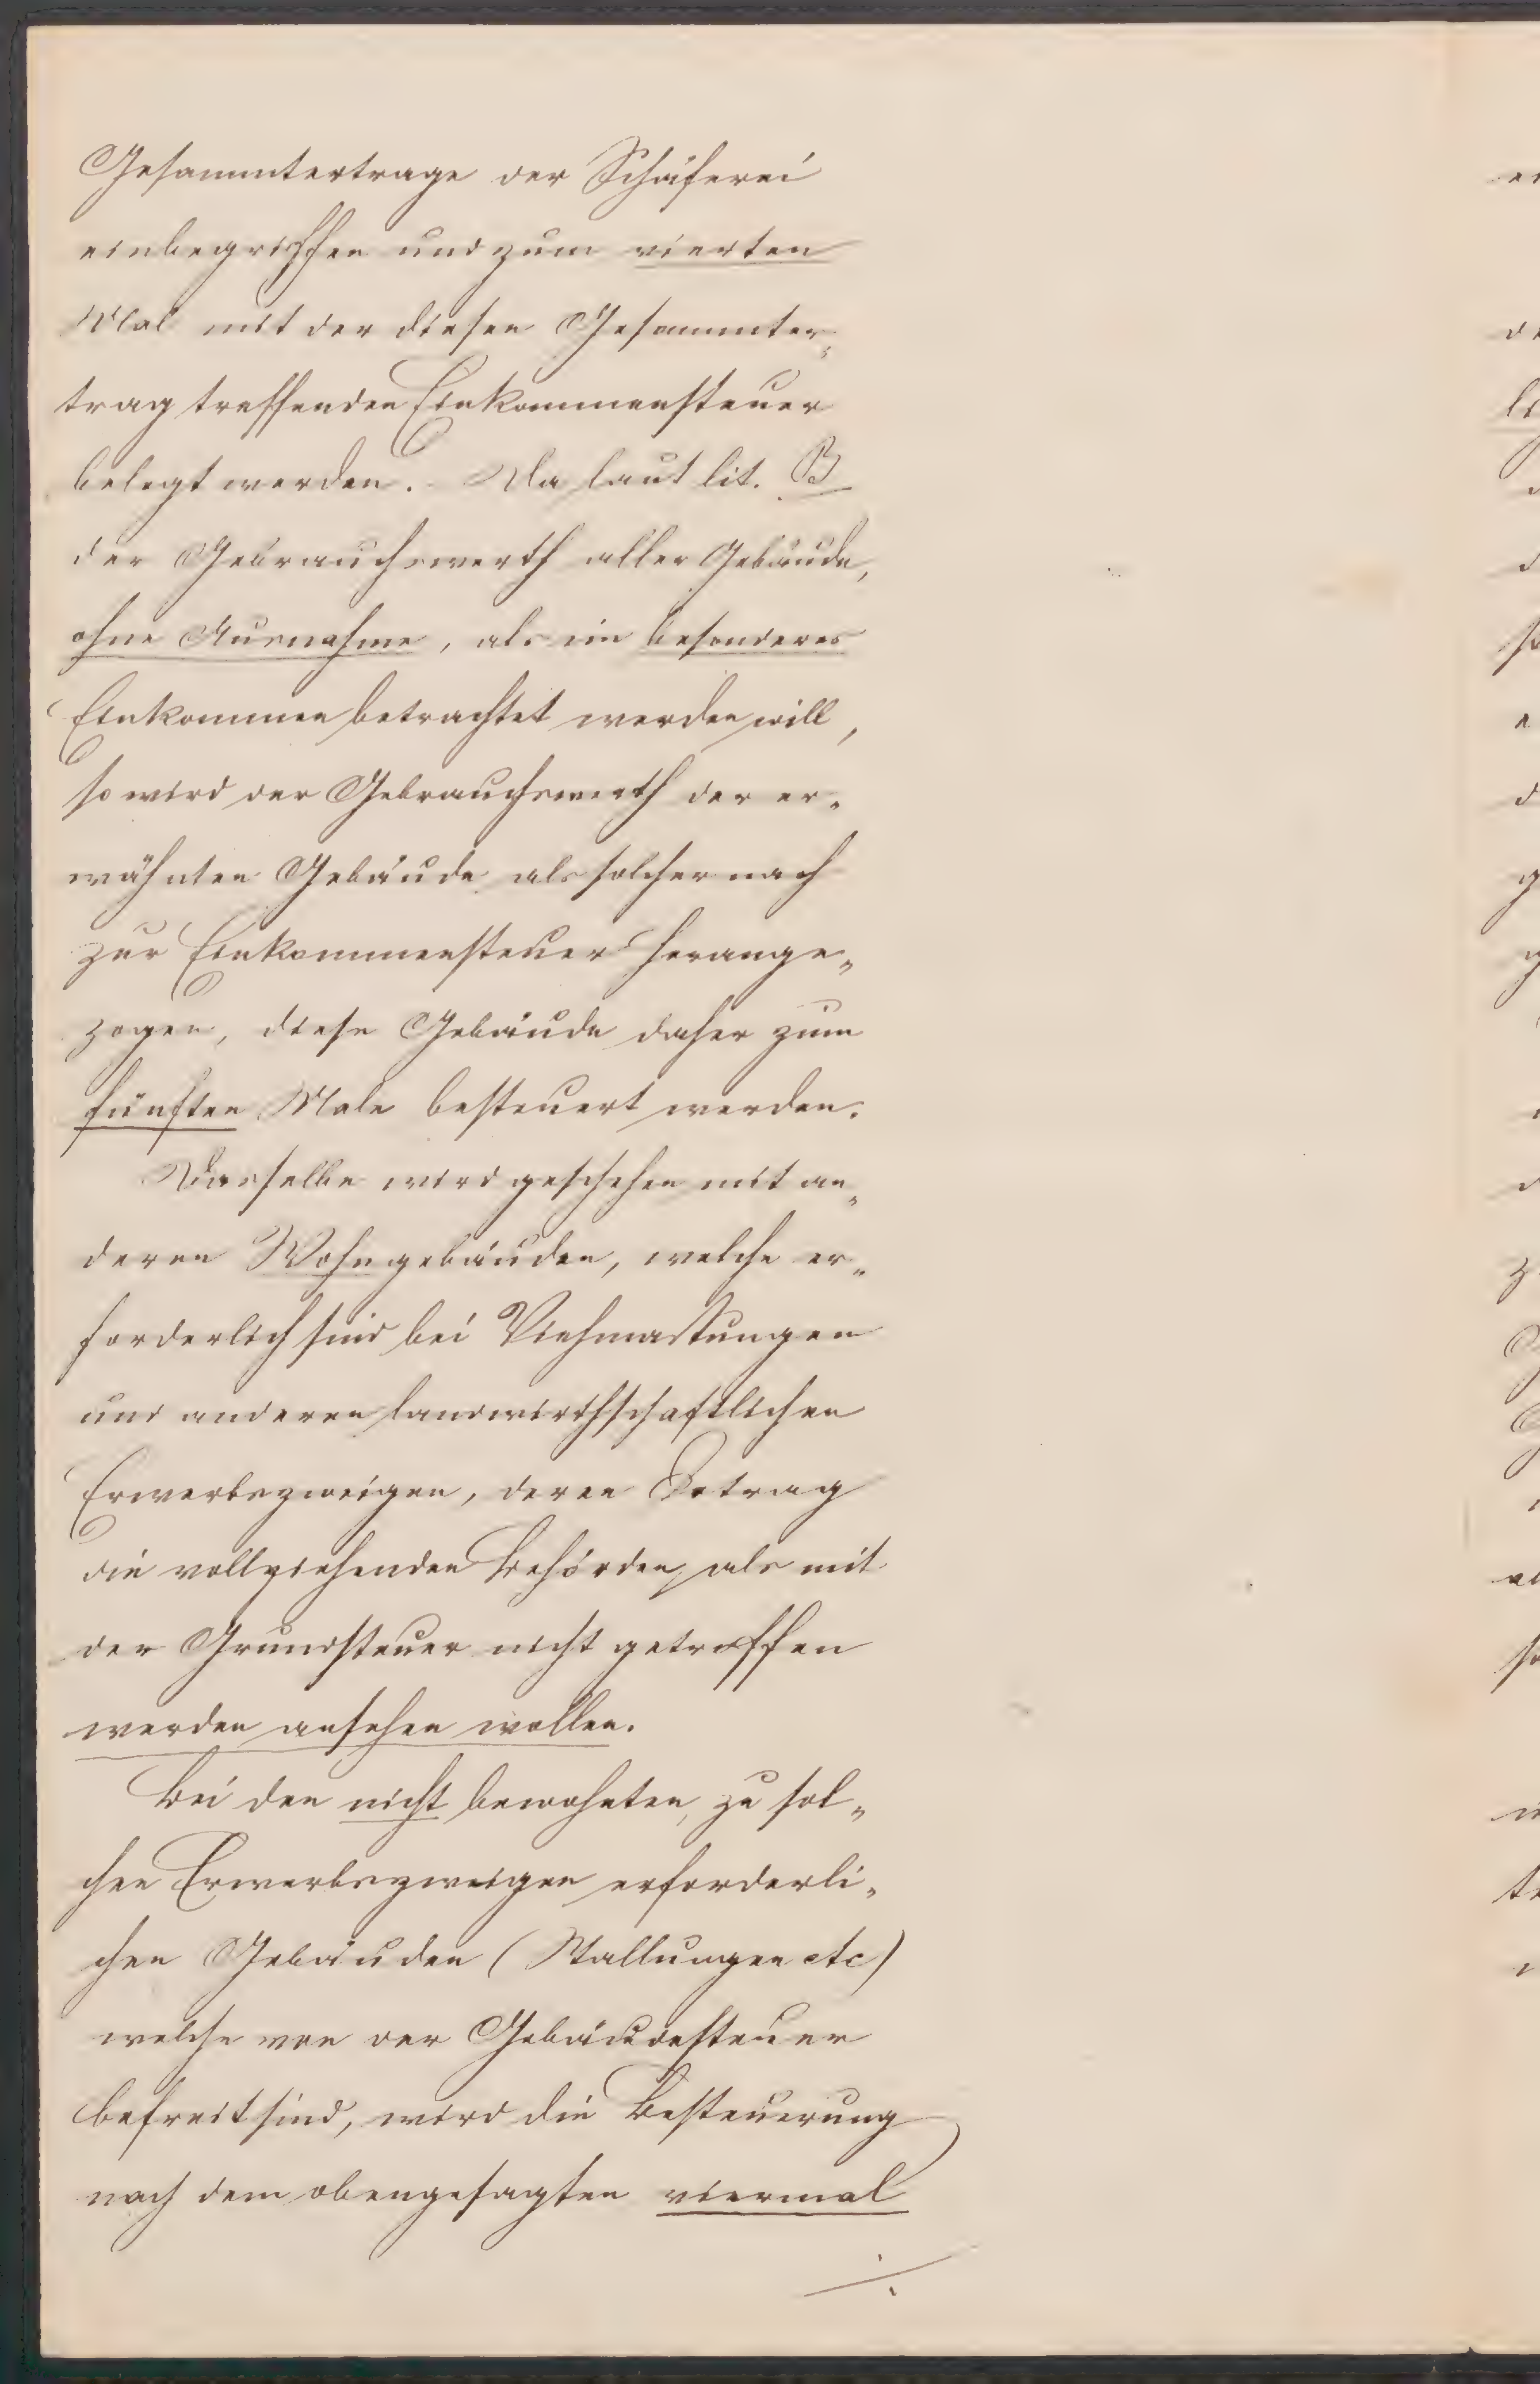 Gesammtertrage der Schäferei
einbegriffen und zum vierten
Mal mit der diesen Gesammter-
trag treffenden Einkommensteuer
belegt werden. Da laut lit. B
der Gebrauchswerth aller Gebäude,
ohne Ausnahme, als ein besonderes
Einkommen betrachtet werden will,
so wird der Gebrauchswerth der er-
wähnten Gebäude als solcher noch
zur Einkommensteuer herange-
zogen, diese Gebäude daher zum
fünften Male besteuert werden.
Dasselbe wird geschehen mit an-
deren Wohngebäuden, welche er-
forderlich sind bei Viehmastungen
und anderen landwirthschaftlichen
Erwerbszweigen, deren Betrag
die vollziehenden Behörden als mit
der Grundsteuer nicht getroffen
werden ansehen wollen.
Bei den nicht bewohnten, zu sol-
chen Erwerbszweigen erforderli-
chen Gebäuden (Stallungen etc)
welche von der Gebäudesteuer
befreit sind, wird die Besteuerung
nach dem obengesagten viermal
./.